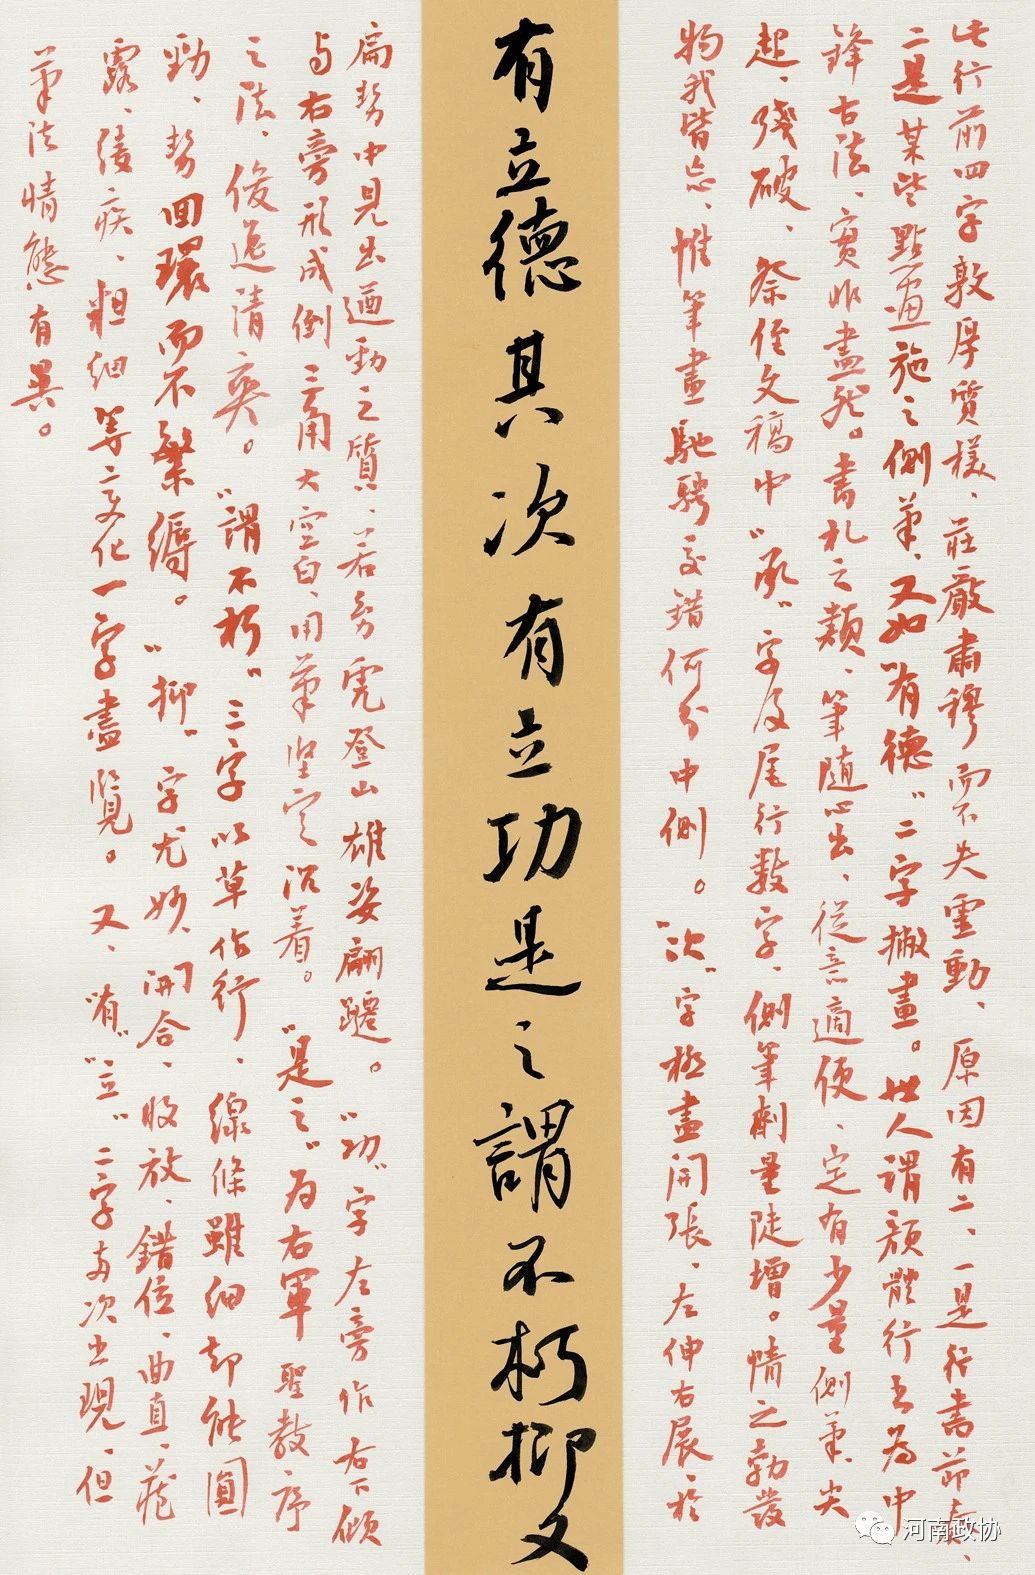 此行前四字敦厚質樸、莊嚴肅穆而不失靈動、原因有二、一是行書節奏、
二是某些點畫施之側筆、又如"有德"二字撇畫。世人謂顏體行書為中
鋒古法、實非盡然。書札之類、筆隨心出、從意適便、定有少量側筆、尖
起、殘破、祭侄文稿中"承"字及尾行數字、側筆劇量陡增。情之勃發
物我皆忘、惟筆畫馳騁交錯何分中側。"次"字極盡開張、左伸右展、於
有立德其次有立功是之謂不朽抑又
扁勢中見出遒勁之質、若勇虎登山雄姿翩躚。"功"字左旁作右下傾
与右旁形成倒三角大空白、用筆堅定沉着。"是之"為右軍聖教序
之法、俊逸清爽。"謂不朽"三字以草作行、線條雖細却能圓
勁、勢回環而不繁縟。"抑"字尤妙、開合、收放、錯位、曲直、藏
露、緩疾、粗細等變化一字盡覽。又、"有""立"二字多次出現、但
筆法情態有異。
河南政协